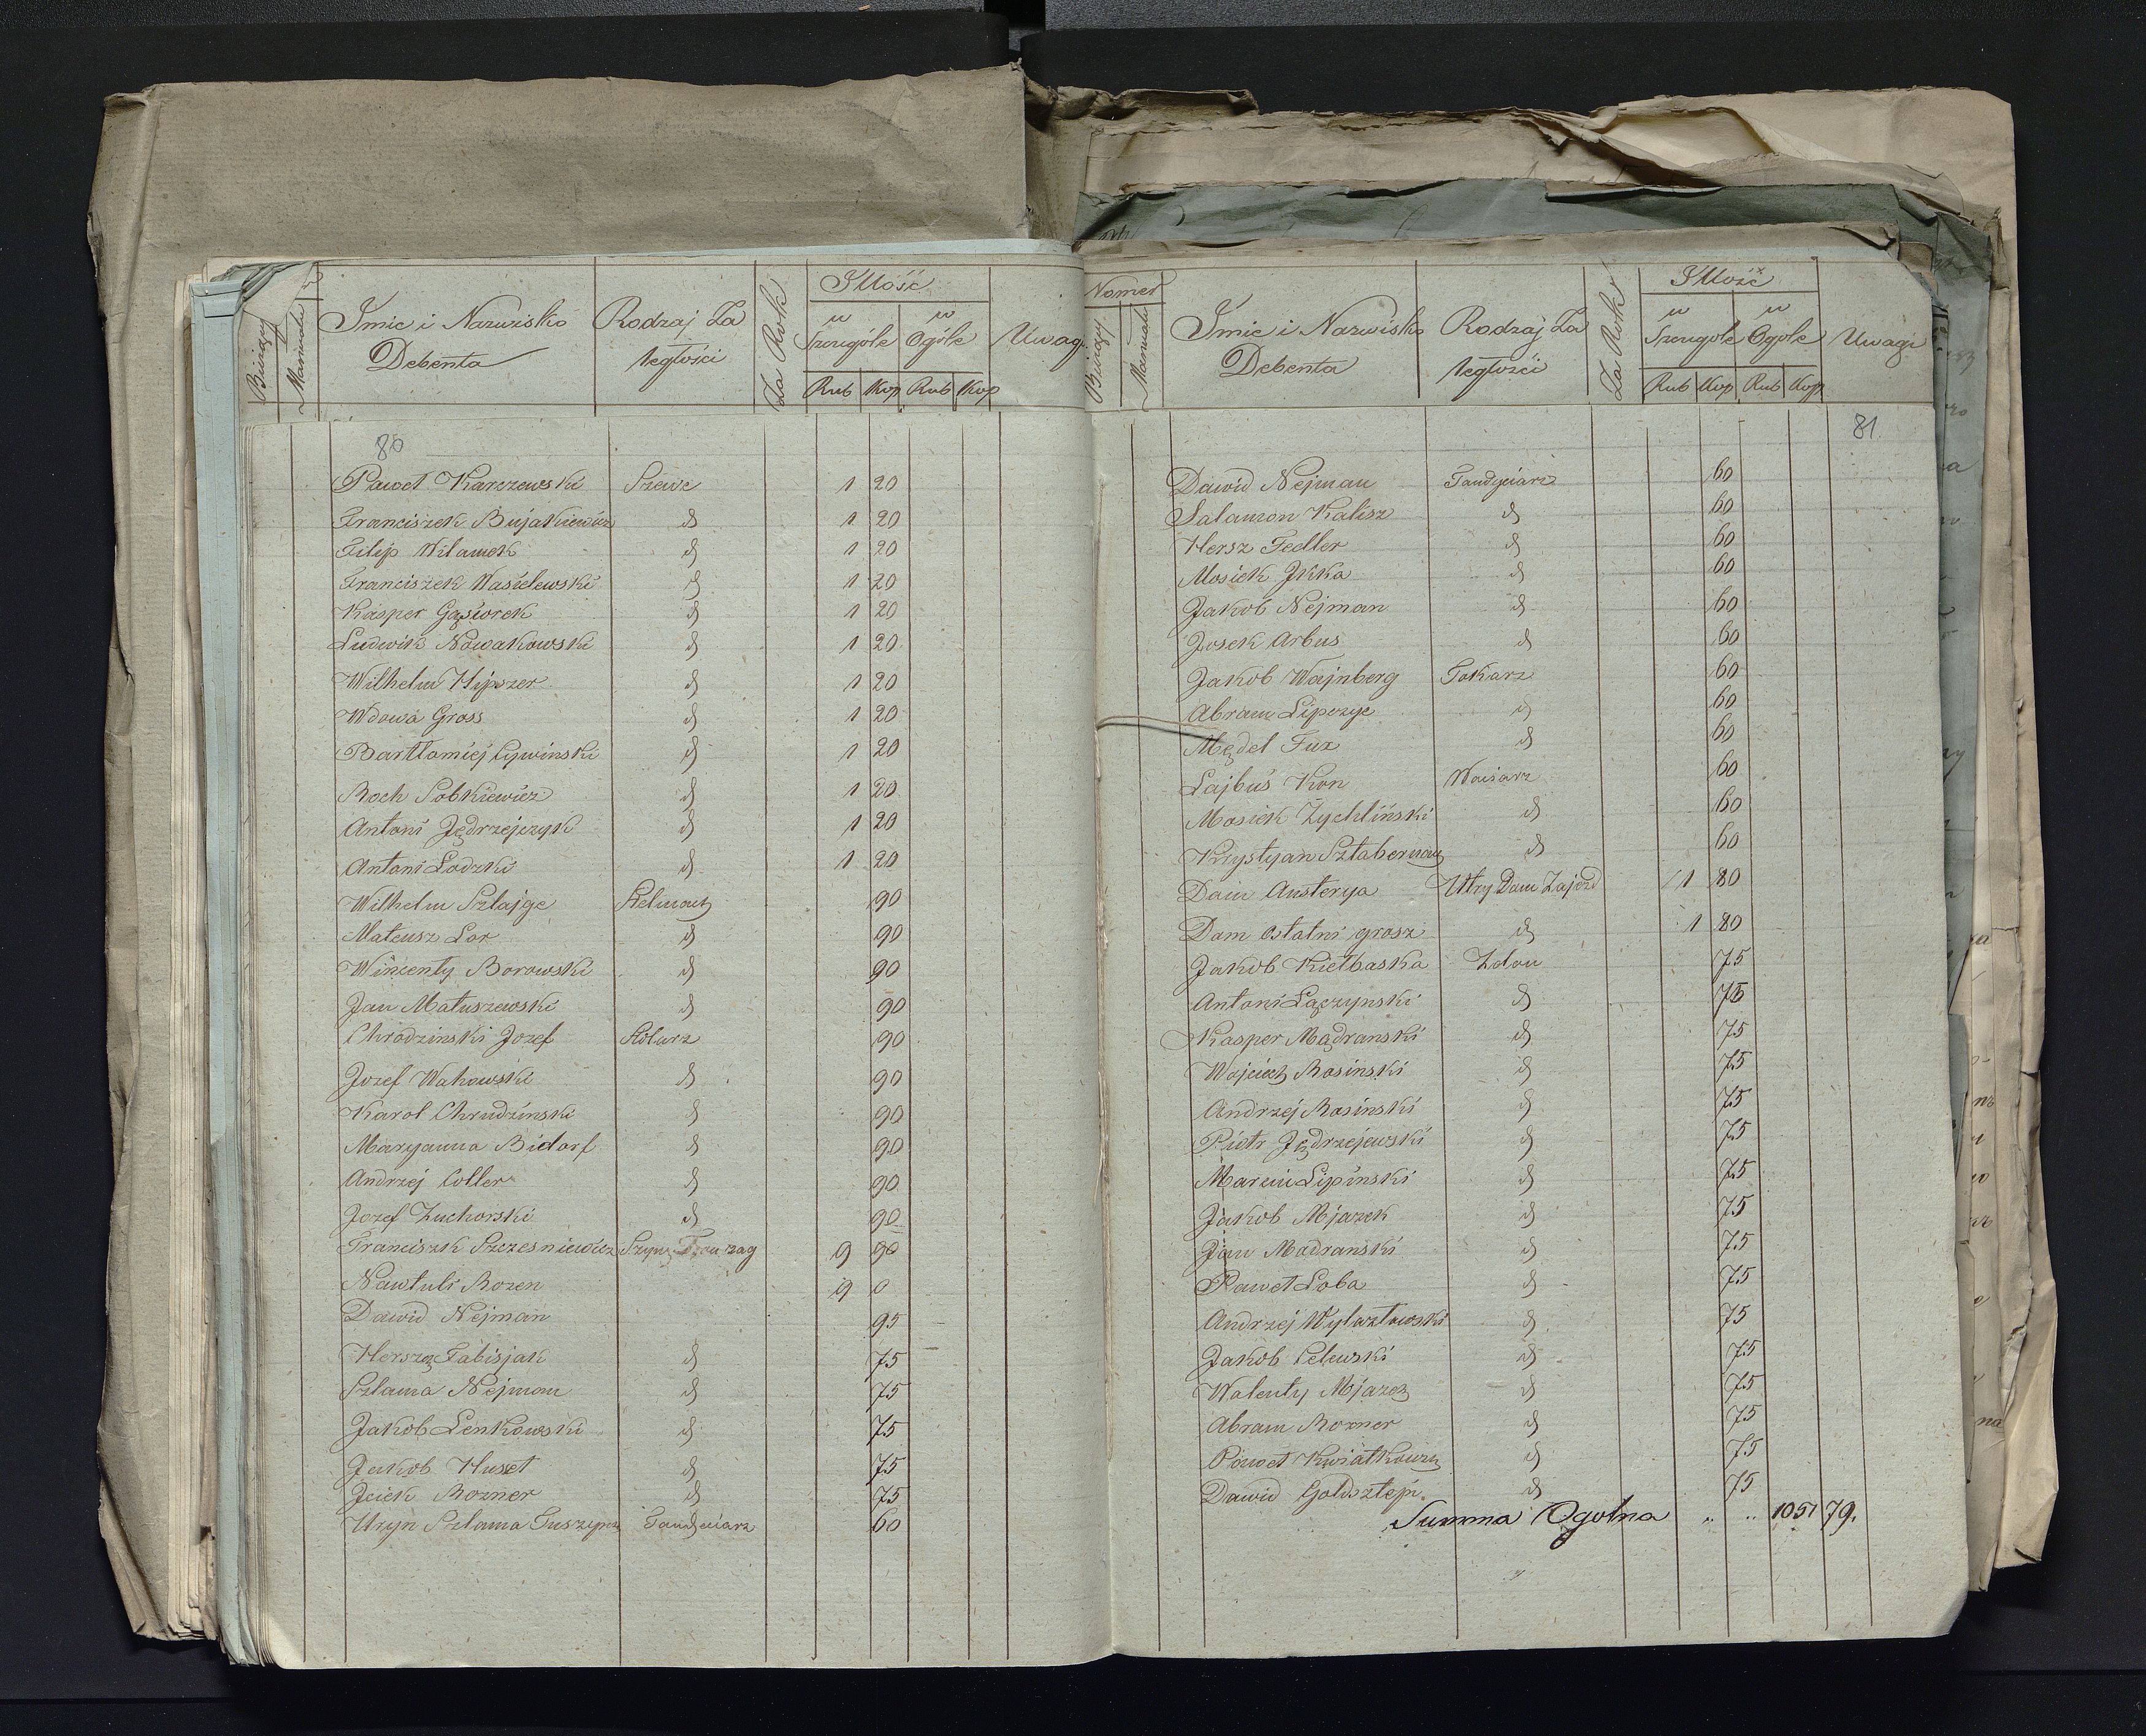 Bieżący
Manuału
Imie i Nazwisko
Debenta
Rodzaj Za
ległości
Za Rok
Ilość
w
Szczególe
w
Ogóle
Uwagi
Rub Kop Rub Kop
80
Paweł Karczewski Szewc 1 20
Franciszek Bujakiewicz d 1 20
Filip Wilamek d 1 20
Franciszek Wasielewski d 1 20
Kasper Gąsiorek d 1 20
Ludwik Nowakowski d 1 20
Wilhelm Hipszer d 1 20
Wdowa Gross d 1 20
Bartłomiej Cywinski d 1 20
Roch Sobkiewicz d 1 20
Antoni Jędrzejczyk d 1 20
Antoni Lodzki d 1 20
Wilhelm Szlajge Stelmach 90
Mateusz Lor d 90
Wincenty Borowski d 90
Jan Matuszewski d 90
Chrodzinski Jozef Stolarz 90
Jozef Wakowski d 90
Karol Chrudzinski d 90
Maryanna Bidorf d 90
Andrzej Coller d 90
Jozef Zuchorski d 90
Franciszk Szczesniewicz 9 90
Nawtuli Rozen 9 0
Dawid Nejman 95
Hersz Fabisjak d 75
Szlama Nejman d 75
Jakob Lenkowski d 75
Jakob Huset d 75
Jcick Rozner d 75
Uryn Szlama Tandyciarz 60
Nomer
Bieżący
Manuału
Imie i Nazwisko
Debenta
Rodzaj Za
ległości
Za Rok
Ilość
w
Szczególe
w
Ogóle
Uwagi
Rub Kop Rub Kop
81
Dawid Nejman Tandyciarz 60
Salamon Kalisz d 60
Hersz Fedler d 60
Mosiek Jkka d 60
Jakob Nejman d 60
Josek Arbus d 60
Jakob Wajnberg Tokarz 60
Abram Lipszyc d 60
Mędel Fux d 60
Lajbuś Kon 60
Mosiek Zychliński d 60
Krystyan d 60
Dom Austerya Utry Dom Zajezd 1 80
Dom ostatni grosz d 1 80
Jakob Kiełbaska Zdou 75
Antoni Łączynski d 75
Kasper Mądranski d 75
Wojciech Rosinski d 75
Andrzej Rosinski d 75
Piotr Jędrzejewski d 75
Marcin Lipinski d 75
Jakob Mjazek d 75
Jan Modranski d 75
Paweł Loba d 75
Andrzej d 75
Jakob Celewski d 75
Walenty Mjazek d 75
Abram Rozner d 75
Paweł Kwiatkowski d 75
Dawid Goldsztejn d 75
Summa Ogolna " " 1051 79.